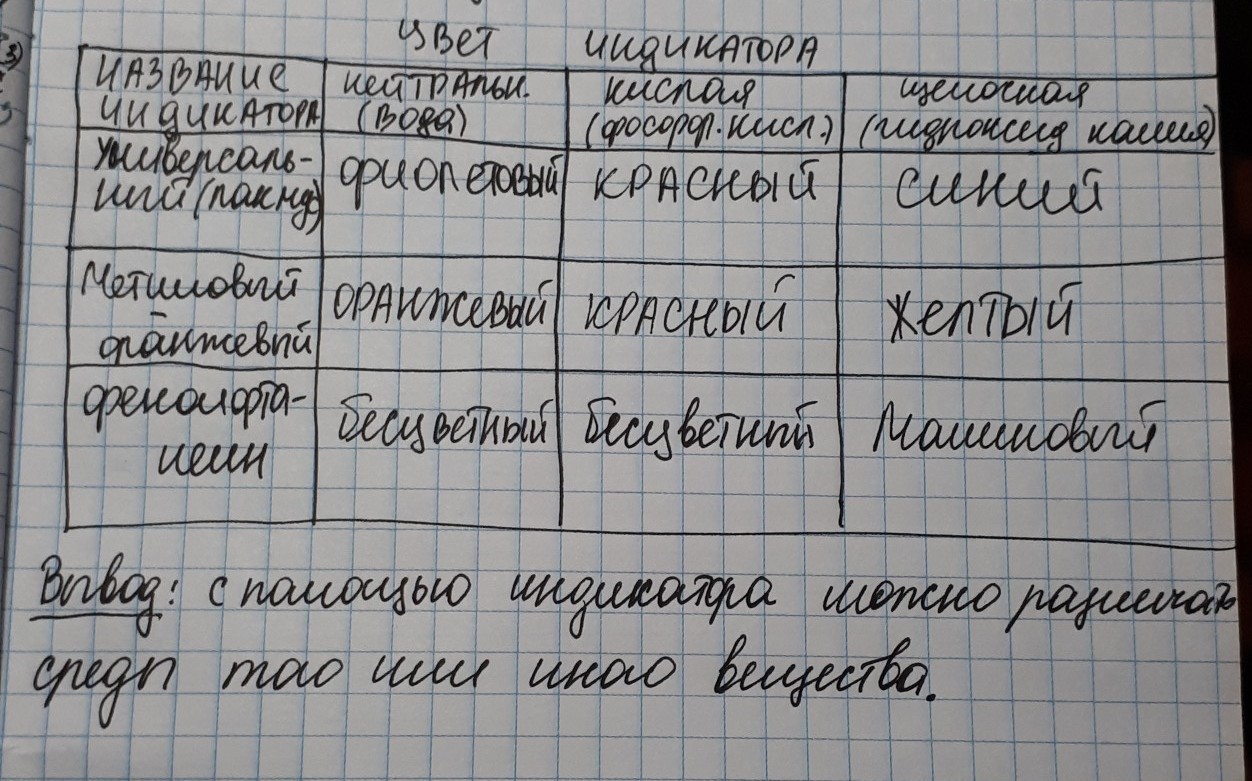 ЦВЕТ ИНДИКАТОРА
НАЗВАНИЕ ИНДИКАТОРА
нейтральн. (вода)
кислая (фосорр.кисл.)
щелочная (гидроксид калия)
Универсаль-
ный (лакмус)
фиолетовый
КРАСНЫЙ
СИНИЙ
Метиловый
оранжевый
ОРАНЖЕВЫЙ
КРАСНЫЙ
Желтый
фенолфта-
леин
бесцветный
бесцветный
Малиновый
Вывод: с помощью индикатора можно различать
среды того или иного вещества.